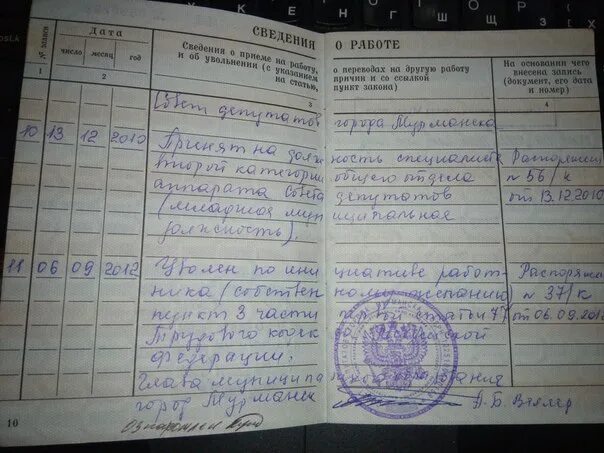 СВЕДЕНИЯ О РАБОТЕ
№ записи
Дата
число месяц год
Сведения о приеме на работу, о переводах на другую работу
и об увольнении (с указанием причин и со ссылкой
на статью, пункт закона)
На основании чего
внесена запись
(документ, его дата
и номер)
1 2 3 4
Совет депутатов города Мурманска
10 13 12 2010 Принят на должность специалиста Распоряжение
второй категории общего отдела № 56/к
аппарата Совета депутатов от 13.12.2010
(младшая муниципальная
должность).
11 06 09 2012 Уволен по инициативе работ Распоряже
ника (собственному желанию) № 37/к
пункт 3 части первой статьи 77 от 06.09.201
Трудового кодек Российской
Федерации.
Глава муниципального образования
город Мурманск А.Б. Веллер
Ознакомлен
10